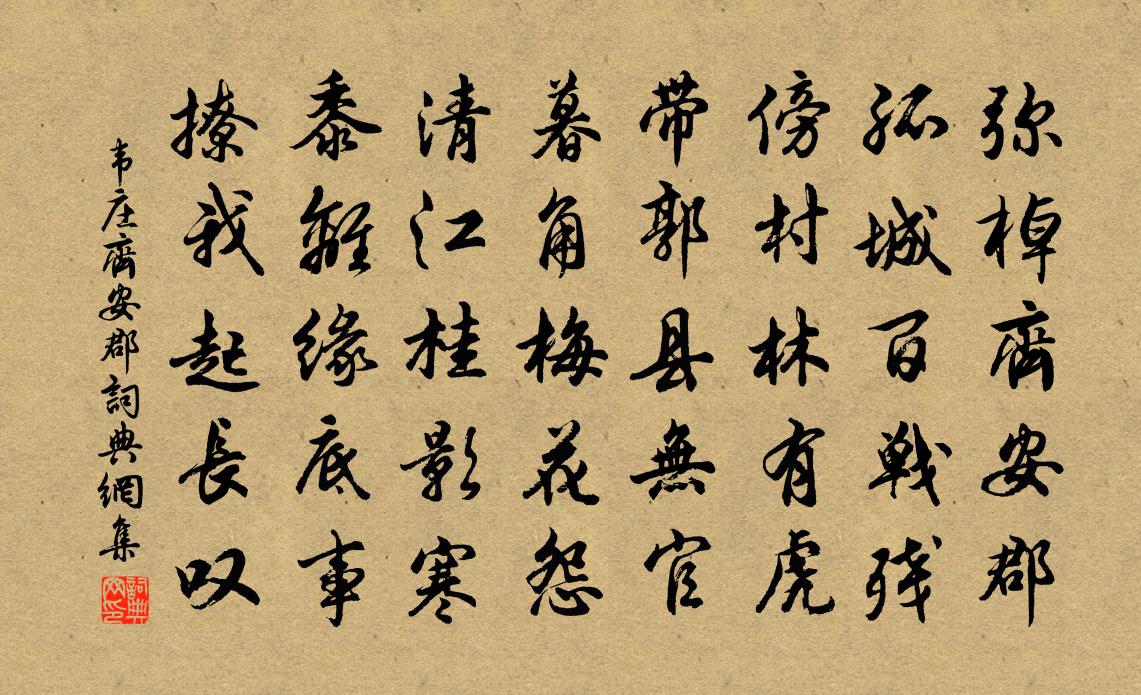 弥棹齊安郡
孤城百戦残
傍村林有虎
带郭县無官
暮角梅花怨
清江桂影寒
黍離缘底事
撩我起長叹
韦庄齊安郡詞典網集
詞典网印